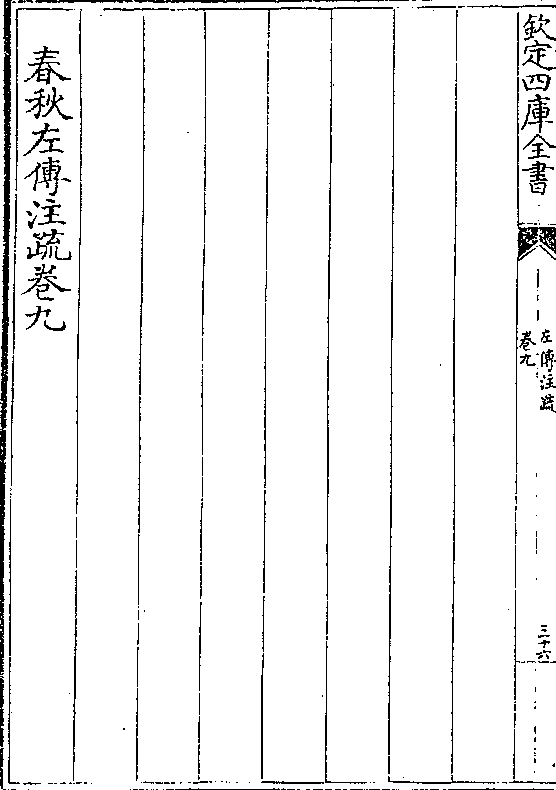 欽定四庫全書
左傳注疏
卷九
三十六
春秋左傳注疏卷九